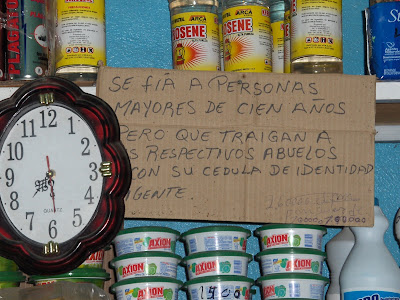 KEROSENE
SENE
SE FIA A PERSONAS
MAYORES DE CIEN AÑOS
PERO QUE TRAIGAN A
RESPECTIVOS ABUELOS
CON SU CEDULA DE IDENTIDAD
12 1 2 3 4 5 6 7 8 9 10 11
QUARTZ
AXION AXION AXION
AXION AXION AXION
AXION AXION AXION
1500